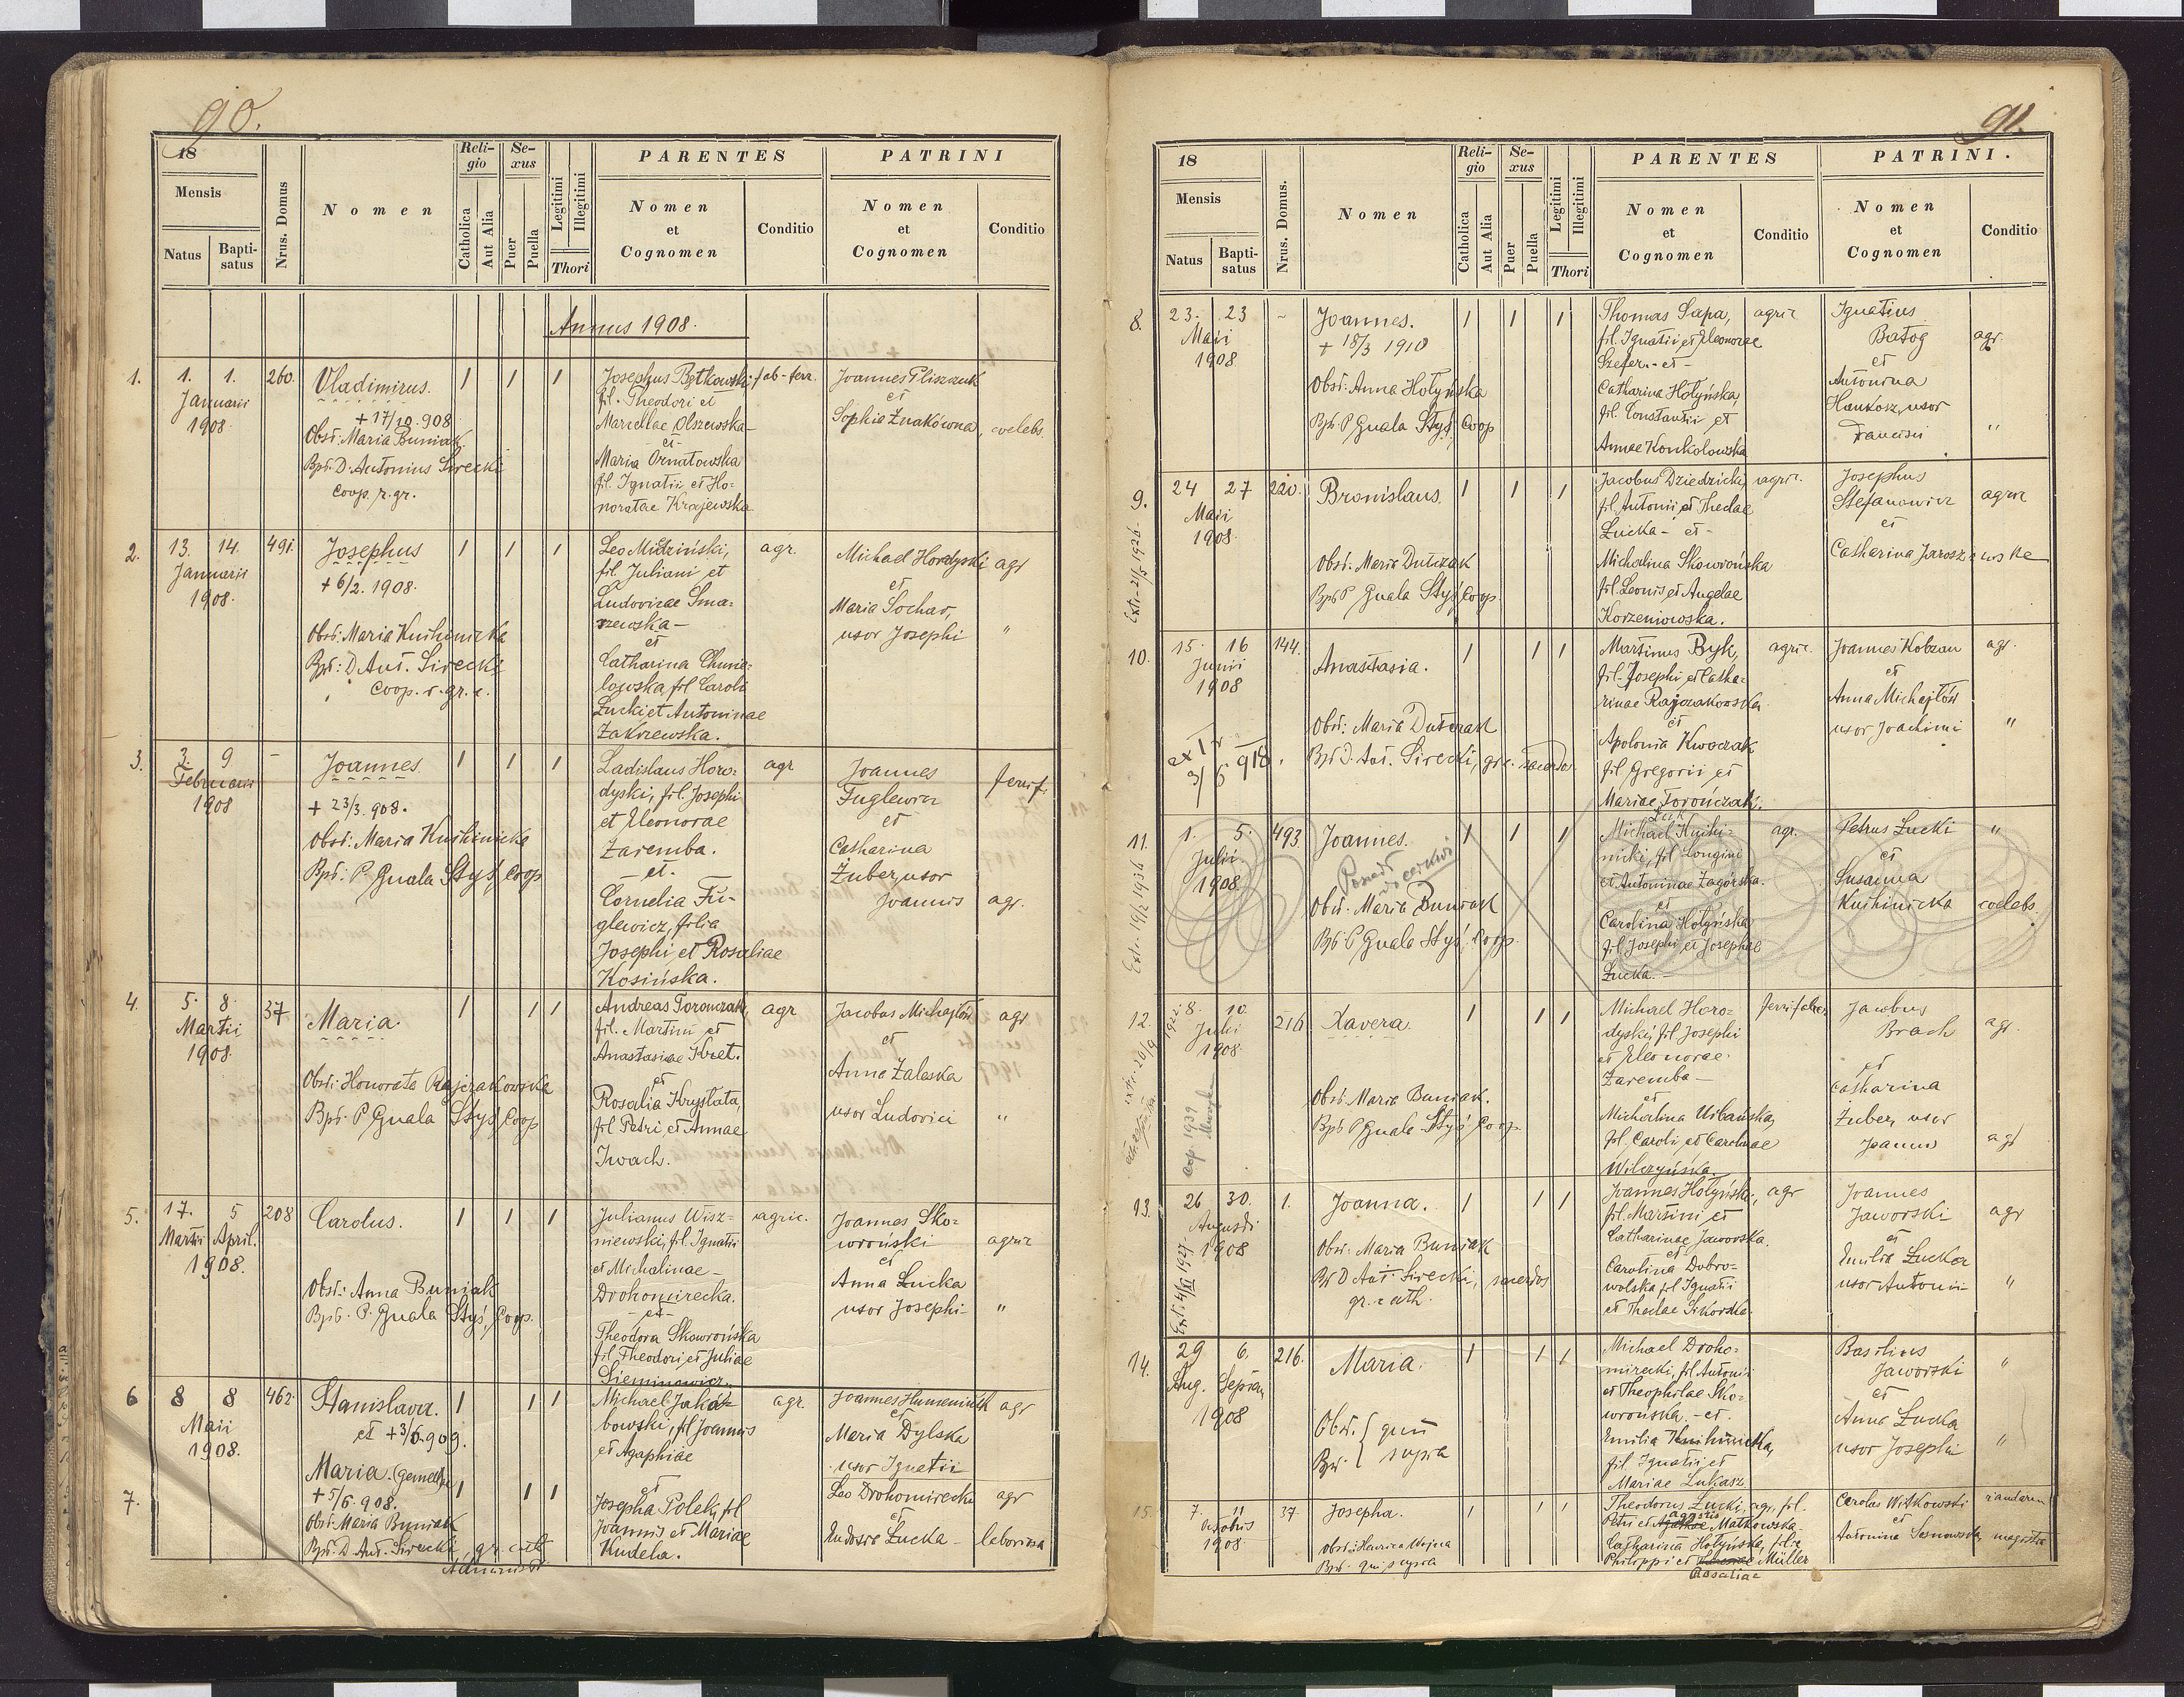 90.
18
Mensis
Natus
Bapti-
satus
Nrus. Domus
Nomen
Reli-
gio
Catholica
Aut Alia
Se-
xus
Puer
Puella
Legitimi
Illegitimi
Thori
PARENTES
Nomen
et
Cognomen
Conditio
PATRINI
Nomen
et
Cognomen
Conditio
Annus 1908.
1.
1. 1.
Januarii
1908.
260.
Vladimirus.
+ 17/10. 908
Obst: Maria Buniak.
Bpt. D. Antonius Sirecki
coop. r. gr.
Josephus Bętkowski,
fil. Theodori et
Marcellae Olszewska-
et
Maria Ornatowska
fil. Ignatii et Ho-
noratae Krajewska
fab-ferr.
Joannes Pliszczuk
et
Sophia Żnakówna,
coelebs.
2.
13. 14.
Januarii
1908.
491.
Josephus
+ 6/2. 1908.
Obst: Maria Knihinicka
Bpt: D. Ant. Sirecki
coop. r. gr. c.
Leo Midziński,
fil. Juliani et
Ludovicae Sma-
rzewska-
et
Catharina Chmie-
lowska fil Caroli
Łucki et Antoninae
Zakrzewska.
agr.
Michael Hordyski
et
Maria Sochar,
uxor Josephi
agr
"
3.
3. 9
Februarii
1908
-
Joannes
+ 23/3. 908.
Obst: Maria Knihinicka
Bpt: P. Guala Styś, Coop
Ladislaus Horo-
dyski, fil. Josephi
et Eleonorae
Zaremba.
et.
Cornelia Fu-
glewicz, filia
Josephi et Rosaliae
Kosińska.
agr
Joannes
Fuglewicz
et
Catharina
Żuber, uxor
Joannis
ferrif.
agr.
4.
5. 8.
Martii
1908.
37
Maria.
Obst: Honorata Rajczakowska
Bpt. P Guala Styś, Coop
Andreas Toronczak,
fil. Martini et
Anastasiae Kret.
et
Rosalia Krystata,
fil Petri et Annae
Iwach.
agr
Jacobus Michajłów
et
Anna Zaleska
uxor Ludovici
agr
"
5.
17. 5
Martii April.
1908.
208
Carolus.
Obst: Anna Buniak
Bpt. P. Guala Styś, Coop.
Julianus Wisz-
niewski, fil. Ignatii
et Michalinae-
Drohomirecka.
-et-
Theodora Skowrońska
fil. Theodori et Juliae
Sieminowicz.
agric.
Joannes Sko-
wroński
et
Anna Łucka
uxor Josephi-
agric
"
6
8 8
Maii
1908.
462.
Stanislava.
et +3/6.909.
Michael Jaku-
bowski, fil Joannis
et Agaphiae
agr.
Joannes Humeniuk
et
Maria Dylska
uxor Ignatii
agr
7.
Maria. (gemellae
+ 5/6. 908.
Obst: Maria Buniak
Bpt. D. Ant. Sirecki gr. cath
Administ
et
Josepha Polek, fil
Joannis et Mariae
Kudela.
Leo Drohomirecki
et
Eudoxia Łucka -
agr
laboriosa
91.
18
Mensis
Natus
Bapti-
satus
Nrus. Domus.
Nomen
Reli-
gio
Catholica
Aut Alia
Se-
xus
Puer
Puella
Legitimi
Illegitimi
Thori
PARENTES
Nomen
et
Cognomen
Conditio
PATRINI.
Nomen
et
Cognomen
Conditio
8.
23. 23
Maii
1908
-
Joannes.
+ 18/3 1910
Obst: Anna Hołyńska
Bpt: P Guala Styś, Coop
Thomas Sapa,
fil. Ignatii et Eleonorae
Szefer.- et -
Catharina Hołyńska,
fil. Constantii et
Annae Konkolowska
agric
Ignatius
Batog
et
Antonina
Hankosz, uxor
Francisci
agr.
"
9.
Extr. 21/5 1926
24 27
Maii
1908.
220.
Bronislaus
Obst. Maria Dutczak
Bpt P. Guala Styś, Coop.
Jacobus Dziedzicki,
fil, Antonii et Theclae
Łucka- et -
Michalina Skowrońska
fil. Leonis et Angelae
Korzeniowska.
agric.
Josephus
Stefanowicz
et
Catharina Jaroszewska
agric
10.
15. 16
Junii
1908
144.
Anastasia.
Obst: Maria Dutczak
Bpt: D. Ant. Sirecki, gr. c. sacerdos.
Martinus Byk,
fil. Josephi et Catha-
rinae Rajczakowska.
et
Apolonia Kwoczak
fil. Gregorii et
Mariae Torończak.
agric.
Joannes Kobzan
et
Anna Michajłów
uxor Joachimi
agr.
"
11.
1. 5.
Julii
1908.
493.
Joannes.
Obst. Maria Buniak
Bpt: P Guala Styś, Coop.
Michael Knihi-
nicki, fil Longini
et Antoninae Zagórska.
et
Carolina Hołyńska
fil. Josephi et Josephae
Łucka.-
agr.
Petrus Łucki
et
Susanna
Knihinicka
"
coelebs.
12.
8. 10.
Julii
1908.
216
Xavera.
Obst. Maria Buniak.
Bpt. P Guala Styś, Coop.
Michael Horo-
dyski, fil Josephi
et Eleonorae.
Zaremba-
et
Michalina Urbańska,
fil. Caroli et Carolinae
Wilczyńska.
ferrifaber
Jacobus
Brach
et
Catharina
Żuber, uxor
Joannis
agr.
agr
13.
26 30.
Augusti
1908
1.
Joanna.
Obst. Maria Buniak
Bpt D. Ant. Sirecki, sacerdos
gr. cath.
Joannes Hołyński,
fil. Martini et
Catharinae Jaworska.
et
Carolina Dobro-
wolska fil Ignatii
et Theclae Sikorska.
agr
Joannes
Jaworski
et
Emilia Łucka
uxor Antonii-
agr
"
14.
29 6.
Aug. Septem,
1908
216.
Maria.
Obst. { qui
Bpt. { supra
Michael Droho-
mirecki, fil Antonii
et Theophilae Sko-
wrońska.- et.
Emilia Knihinicka,
fil Ignatii et
Mariae Lukasz
Basilius
Jaworski
et
Anna Łucka
uxor Josephi
"
"
15.
7. 11
Octobris
1908.
37.
Josepha.
Obst: Henrica Wojna
Bpt. qui supra
Theodorus Łucki, agr, fil.
Petri et Matkowska
Catharina Hołyńska, filia
Philippi et Müller
Rosaliae
Carolus Witkowski
et
Antonina Sosnowska,
magistra